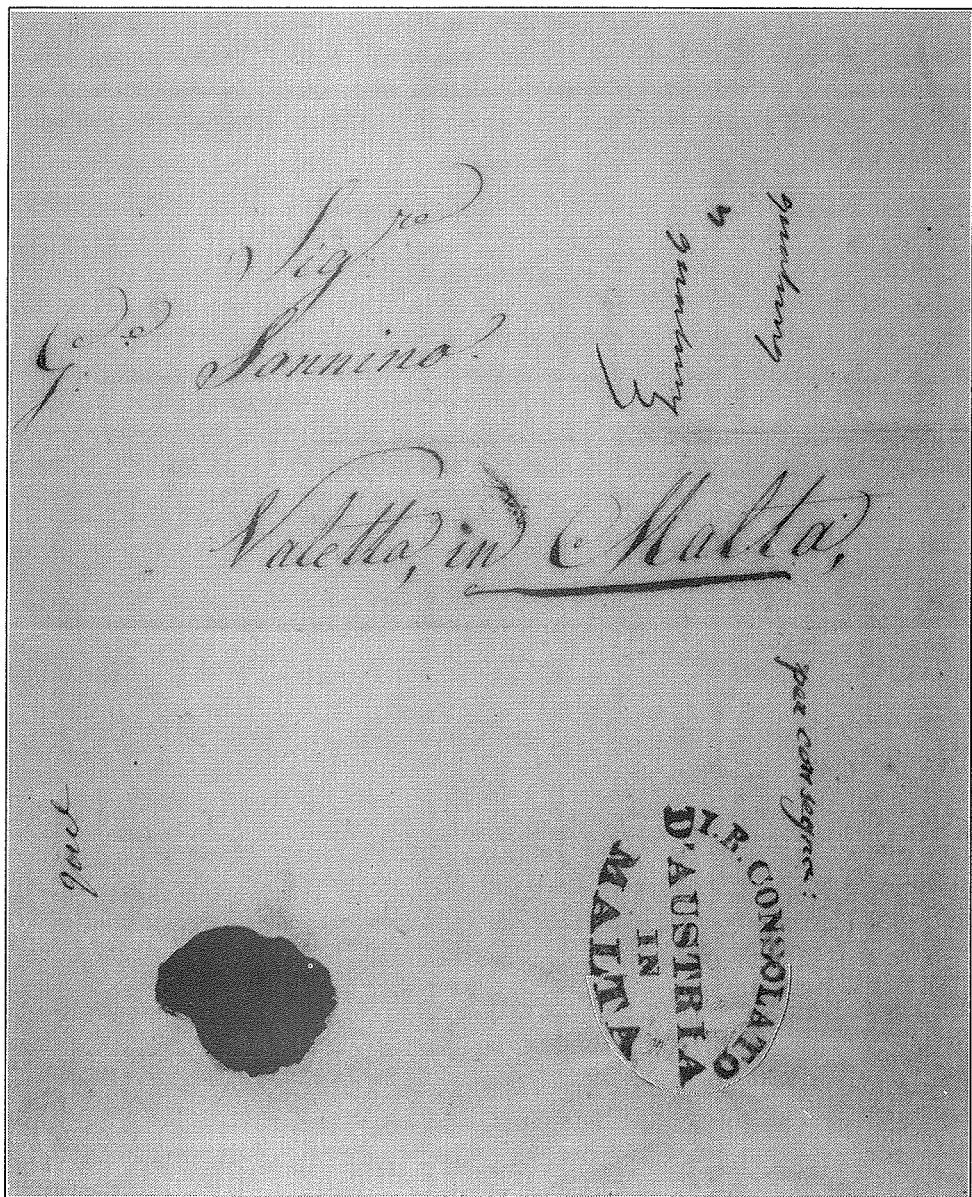 Sig.ro
G.o Sannino.
Valetta, in Malta,
per consegna:
I. R. CONSOLATO
D'AUSTRIA
IN
MALTA